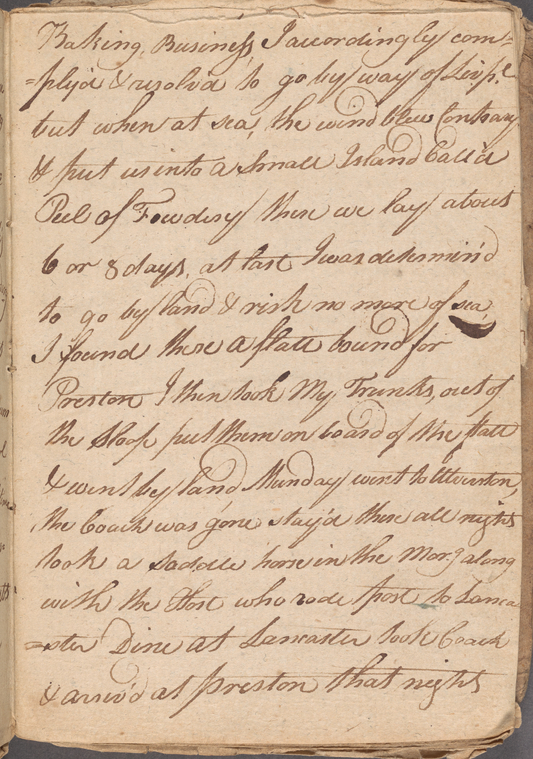 Baking Business, I accordingly com=
=plyd & resolvd to go by way of Livp.l
but when at sea, the wind blew Contrary
& put us into a Small Island Call'd
Peel of Fowdery there we lay about
6 or 8 days, at last I was determin'd
to go by land & risk no more of sea,
I found there a flatt bound for
Preston I then took My Trunks, out of
the Sloop put them on board of the flatt
& went by land, Munday went to Ulverston,
the Coach was gone stay'd there all night
took a Saddle horse in the Mor.g along
with the Post who rode post to Lanca
=ster Dine at Lancaster took Coach
& arriv'd at Preston that night